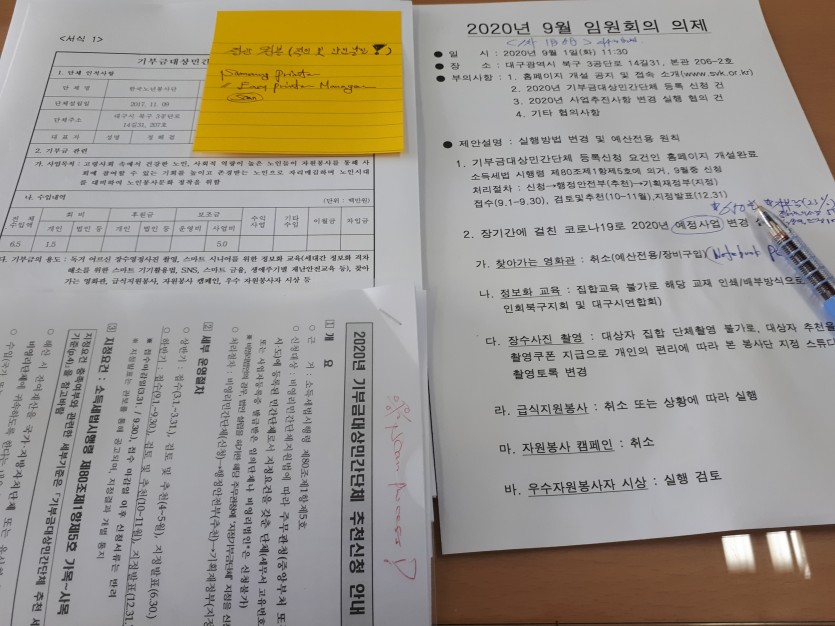 <서식 1>
기부금대상민간단
1. 단체 인적사항
단 체 명
한국노년봉사단
단체설립일
2017. 11. 09
단체주소
대구시 북구 3공단로
14길31, 207호
대 표 자
성명
2. 기부금 관련
가. 사업목적 : 고령사회 속에서 건강한 노인, 사회적 역량이 높은 노인들이 자원봉사를 통해 사
회에 참여할 수 있는 기회를 높이고 존경받는 노인으로 자리매김하여 노인시대
를 대비하여 노인봉사문화 정착을 위함
나. 수입내역
(단위 : 백만원)
전 체
수입액
회 비
후원금
보조금
수익
사업
기타
수입
이월금
차입금
개인
법인 등
개인
법인 등
운영비
사업비
6.5
1.5
5.0
다. 기부금의 용도 : 독거 어르신 장수영정사진 촬영, 스마트 시니어를 위한 정보화 교육(세대간 정보화 격차
해소를 위한 스마트 기기활용법, SNS, 스마트 금융, 생애주기별 재난안전교육 등), 찾아
가는 영화관, 급식지원봉사, 자원봉사 캠페인, 우수 자원봉사자 시상 등
Samsung printer
Easy printer Manager
2020년 9월 임원회의 의제
● 일 시 : 2020년 9월 1일(화) 11:30
● 장 소 : 대구광역시 북구 3공단로 14길31, 본관 206-2호
● 부의사항 : 1. 홈페이지 개설 공지 및 접속 소개(www.svk.or.kr)
2. 2020년 기부금대상민간단체 등록 신청 건
3. 2020년 사업추진사항 변경 실행 협의 건
4. 기타 협의사항
● 제안설명 : 실행방법 변경 및 예산전용 원칙
1. 기부금대상민간단체 등록신청 요건인 홈페이지 개설완료
소득세법 시행령 제80조제1항제5호에 의거, 9월중 신청
처리절차 : 신청→행정안전부(추천)→기획재정부(지정)
접수(9.1-9.30), 검토및추천(10-11월),지정발표(12.31)
2. 장기간에 걸친 코로나19로 2020년 예정사업 변경
가. 찾아가는 영화관 : 취소(예산전용/장비구입) Notebook PC
나. 정보화 교육 : 집합교육 불가로 해당 교재 인쇄/배부방식으로
인회북구지회 및 대구시연합회)
다. 장수사진 촬영 : 대상자 집합 단체촬영 불가로, 대상자 추천을
촬영쿠폰 지급으로 개인의 편리에 따라 본 봉사단 지정 스튜디
촬영토록 변경
라. 급식지원봉사 : 취소 또는 상황에 따라 실행
마. 자원봉사 캠페인 : 취소
바. 우수자원봉사자 시상 : 실행 검토
2020년 기부금대상민간단체 추천신청 안내
1 개 요
○ 근 거 : 소득세법시행령 제80조제1항제5호
○ 신청대상 : 비영리민간단체지원법에 따라 주무관청(중앙부처 또
시·도)에 등록된 민간단체로서 지정요건을 갖춘 단체(세무서 고유번호
또는 사업자등록증 발급받은 임의단체나 비영리법인*은 신청불가)
○ 처리절차 : 비영리민간단체(신청)→행정안전부(추천)→기획재정부(지정
2 세부 운영절차
○ 상반기 : 접수(3.1~3.31.), 검토 및 추천(4~5월), 지정발표(6.30.)
○ 하반기 : 접수(9.1~9.30), 검토 및 추천(10~11월), 지정발표(12.31.
※ 접수마감일(3.31 / 9.30.), 접수 마감일 이후 신청서류는 반려
※ 지정발표는 관보를 통해 공고되며, 지정결과 개별 통지
3 지정요건 : 소득세법시행령 제80조제1항제5호 가목~사목
지정요건 충족여부와 관련한 세부기준은 「기부금대상민간단체 추천 세
기준(p.4)」을 참고바람
○ 해산 시 잔여재산을 국가·지방자치단체 또는 유사한
비영리단체에 귀속하도록 한다는 내용